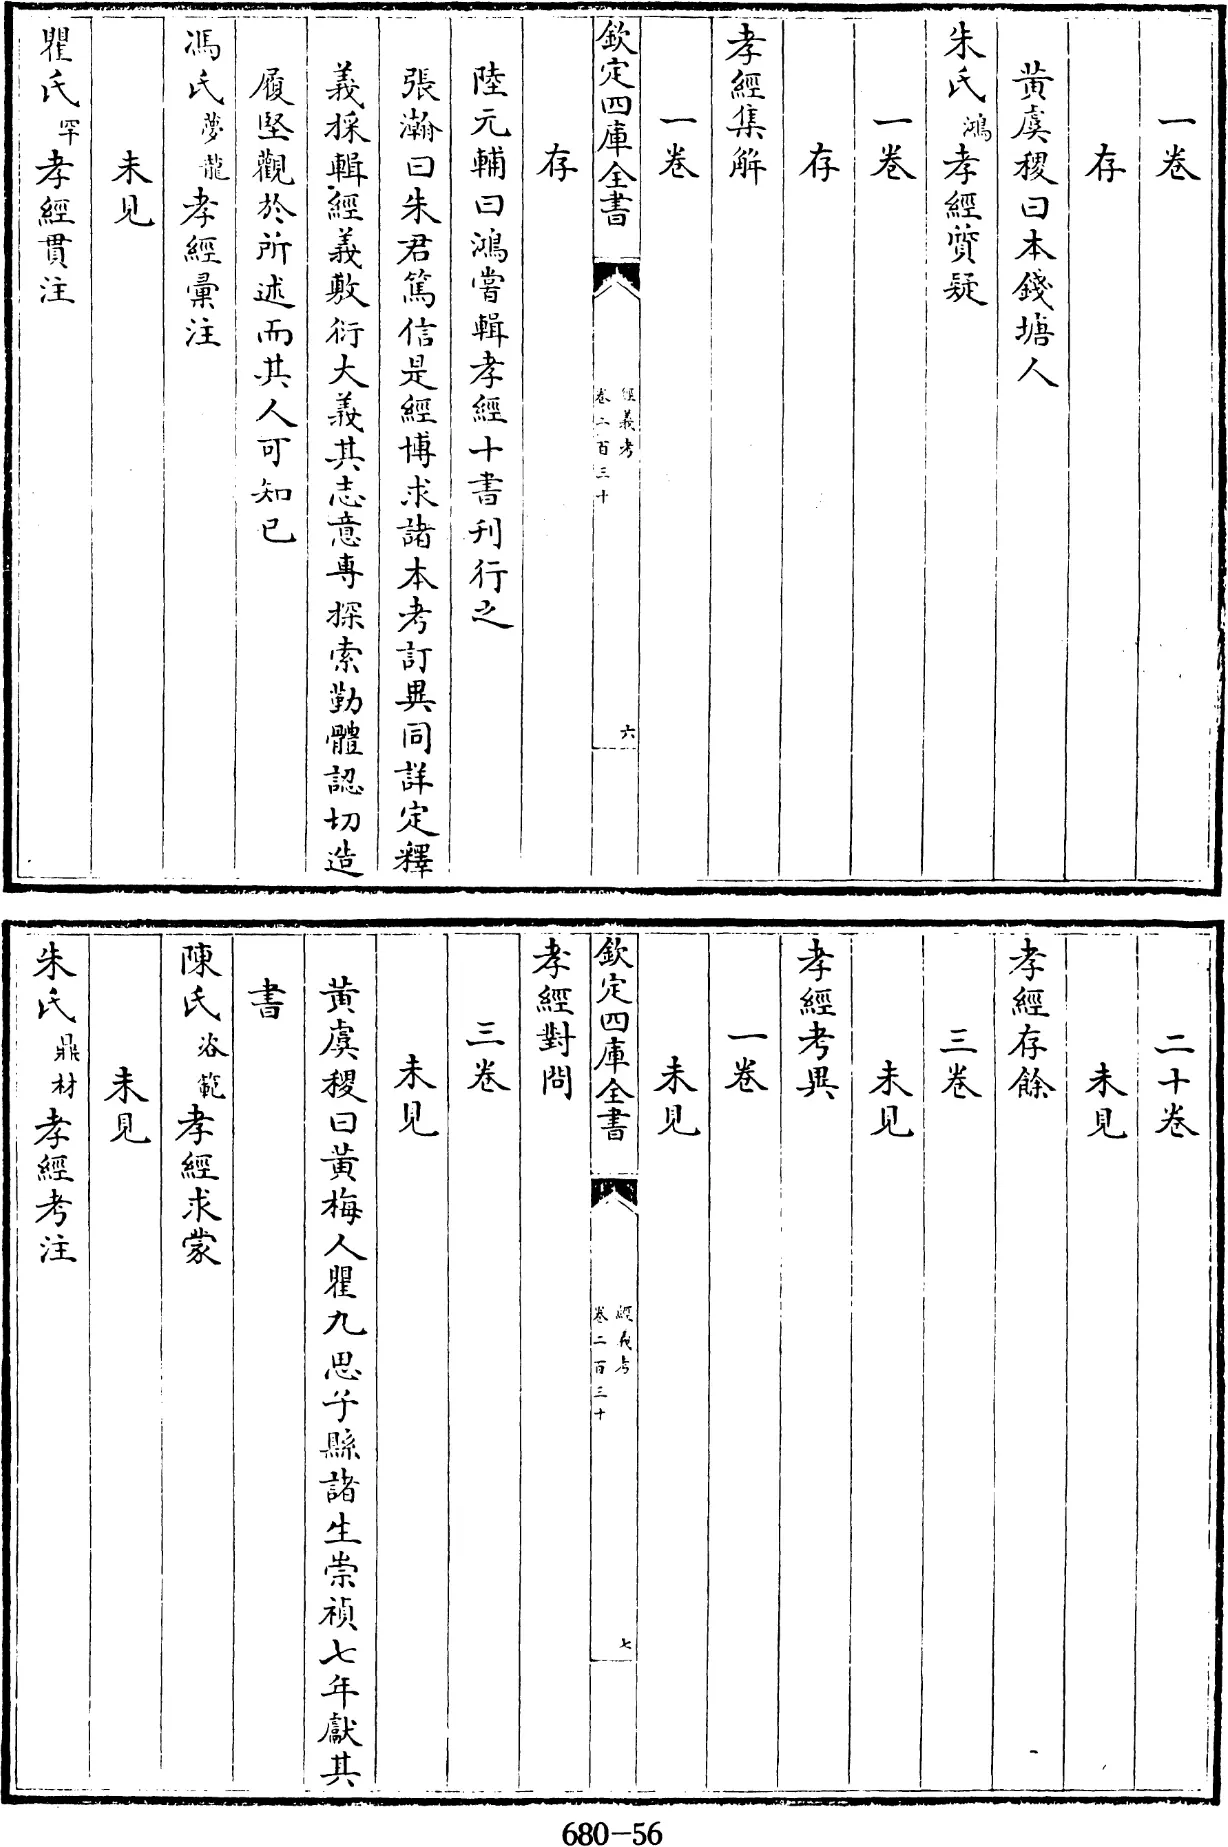 一卷
存
黄虞稷曰本錢塘人
朱氏鴻孝經質疑
一卷
存
孝經集解
一卷
欽定四庫全書
經義考
卷二百三十
六
存
陸元輔曰鴻嘗輯孝經十書刊行之
張瀚曰朱君篤信是經博求諸本考訂異同詳定釋
義採輯經義敷衍大義其志意專探索勤體認切造
履堅觀於所述而其人可知已
馮氏夢龍孝經彙注
未見
瞿氏罕孝經貫注
二十卷
未見
孝經存餘
三卷
未見
孝經考異
一卷
未見
欽定四庫全書
經義考
卷二百三十
七
孝經對問
三卷
未見
黄虞稷曰黄梅人瞿九思子縣諸生崇禎七年獻其
書
陳氏咨範孝經求蒙
未見
朱氏鼎材孝經考注
680-56